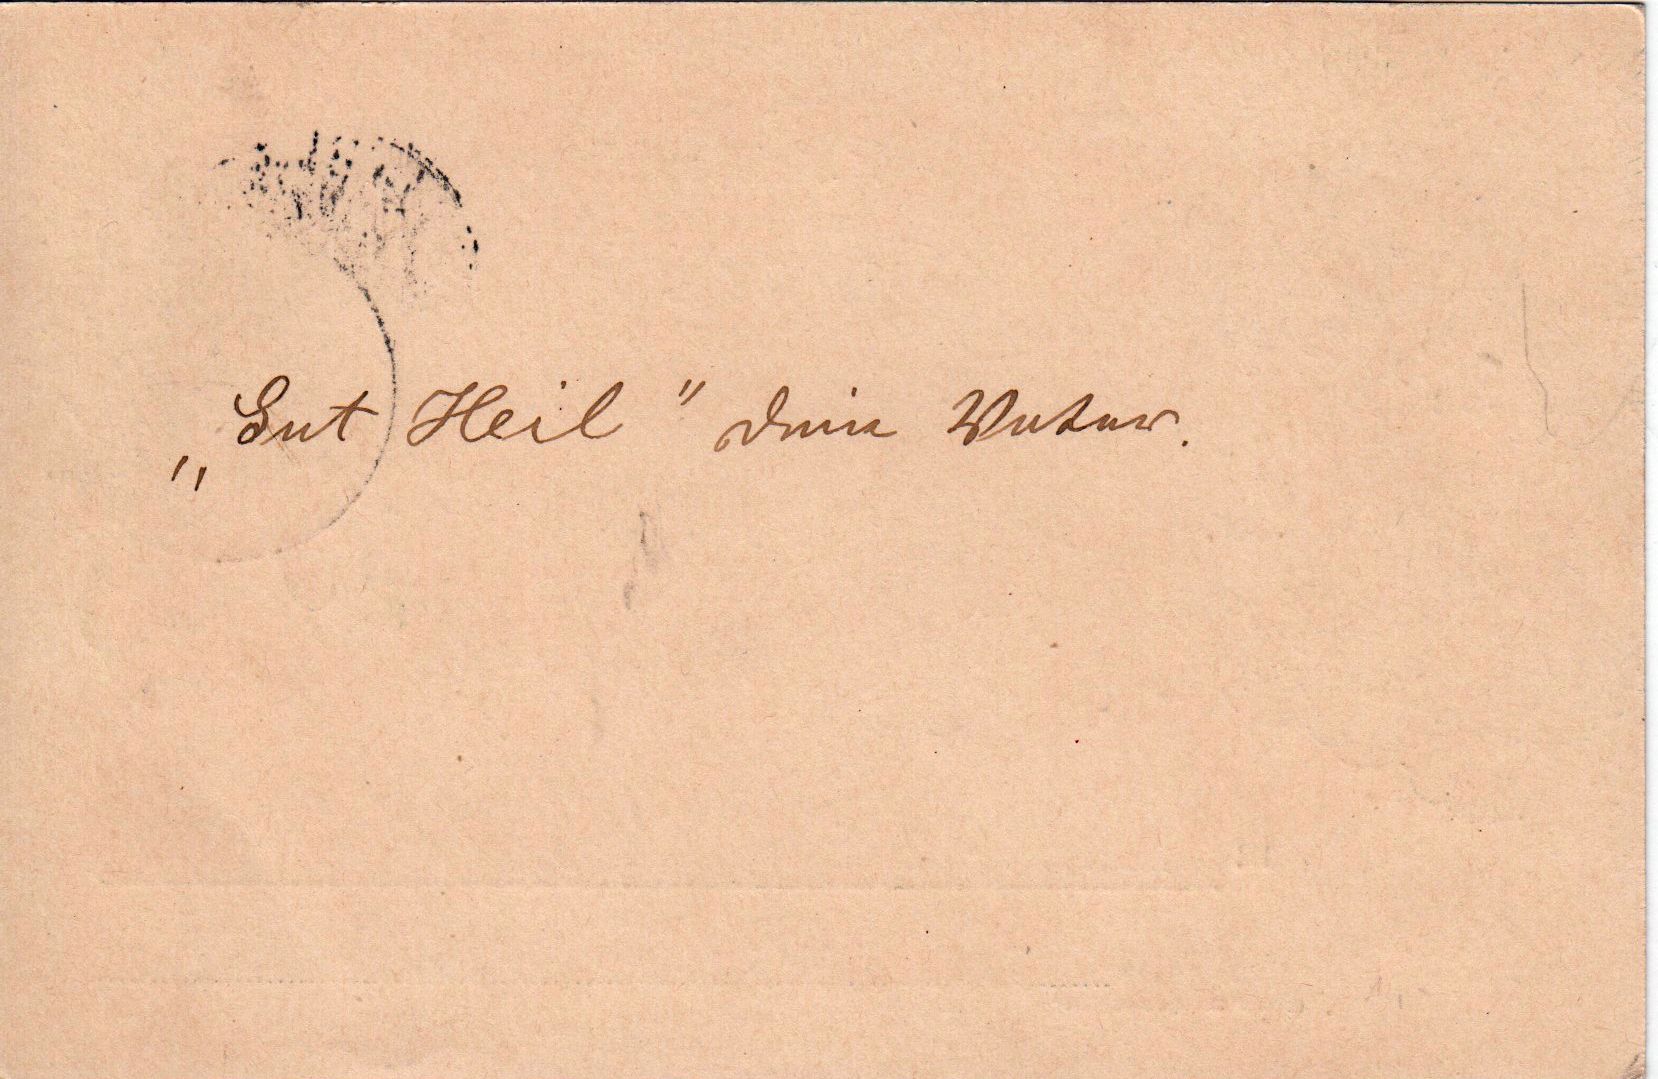 „Gut Heil" Dein Vater.